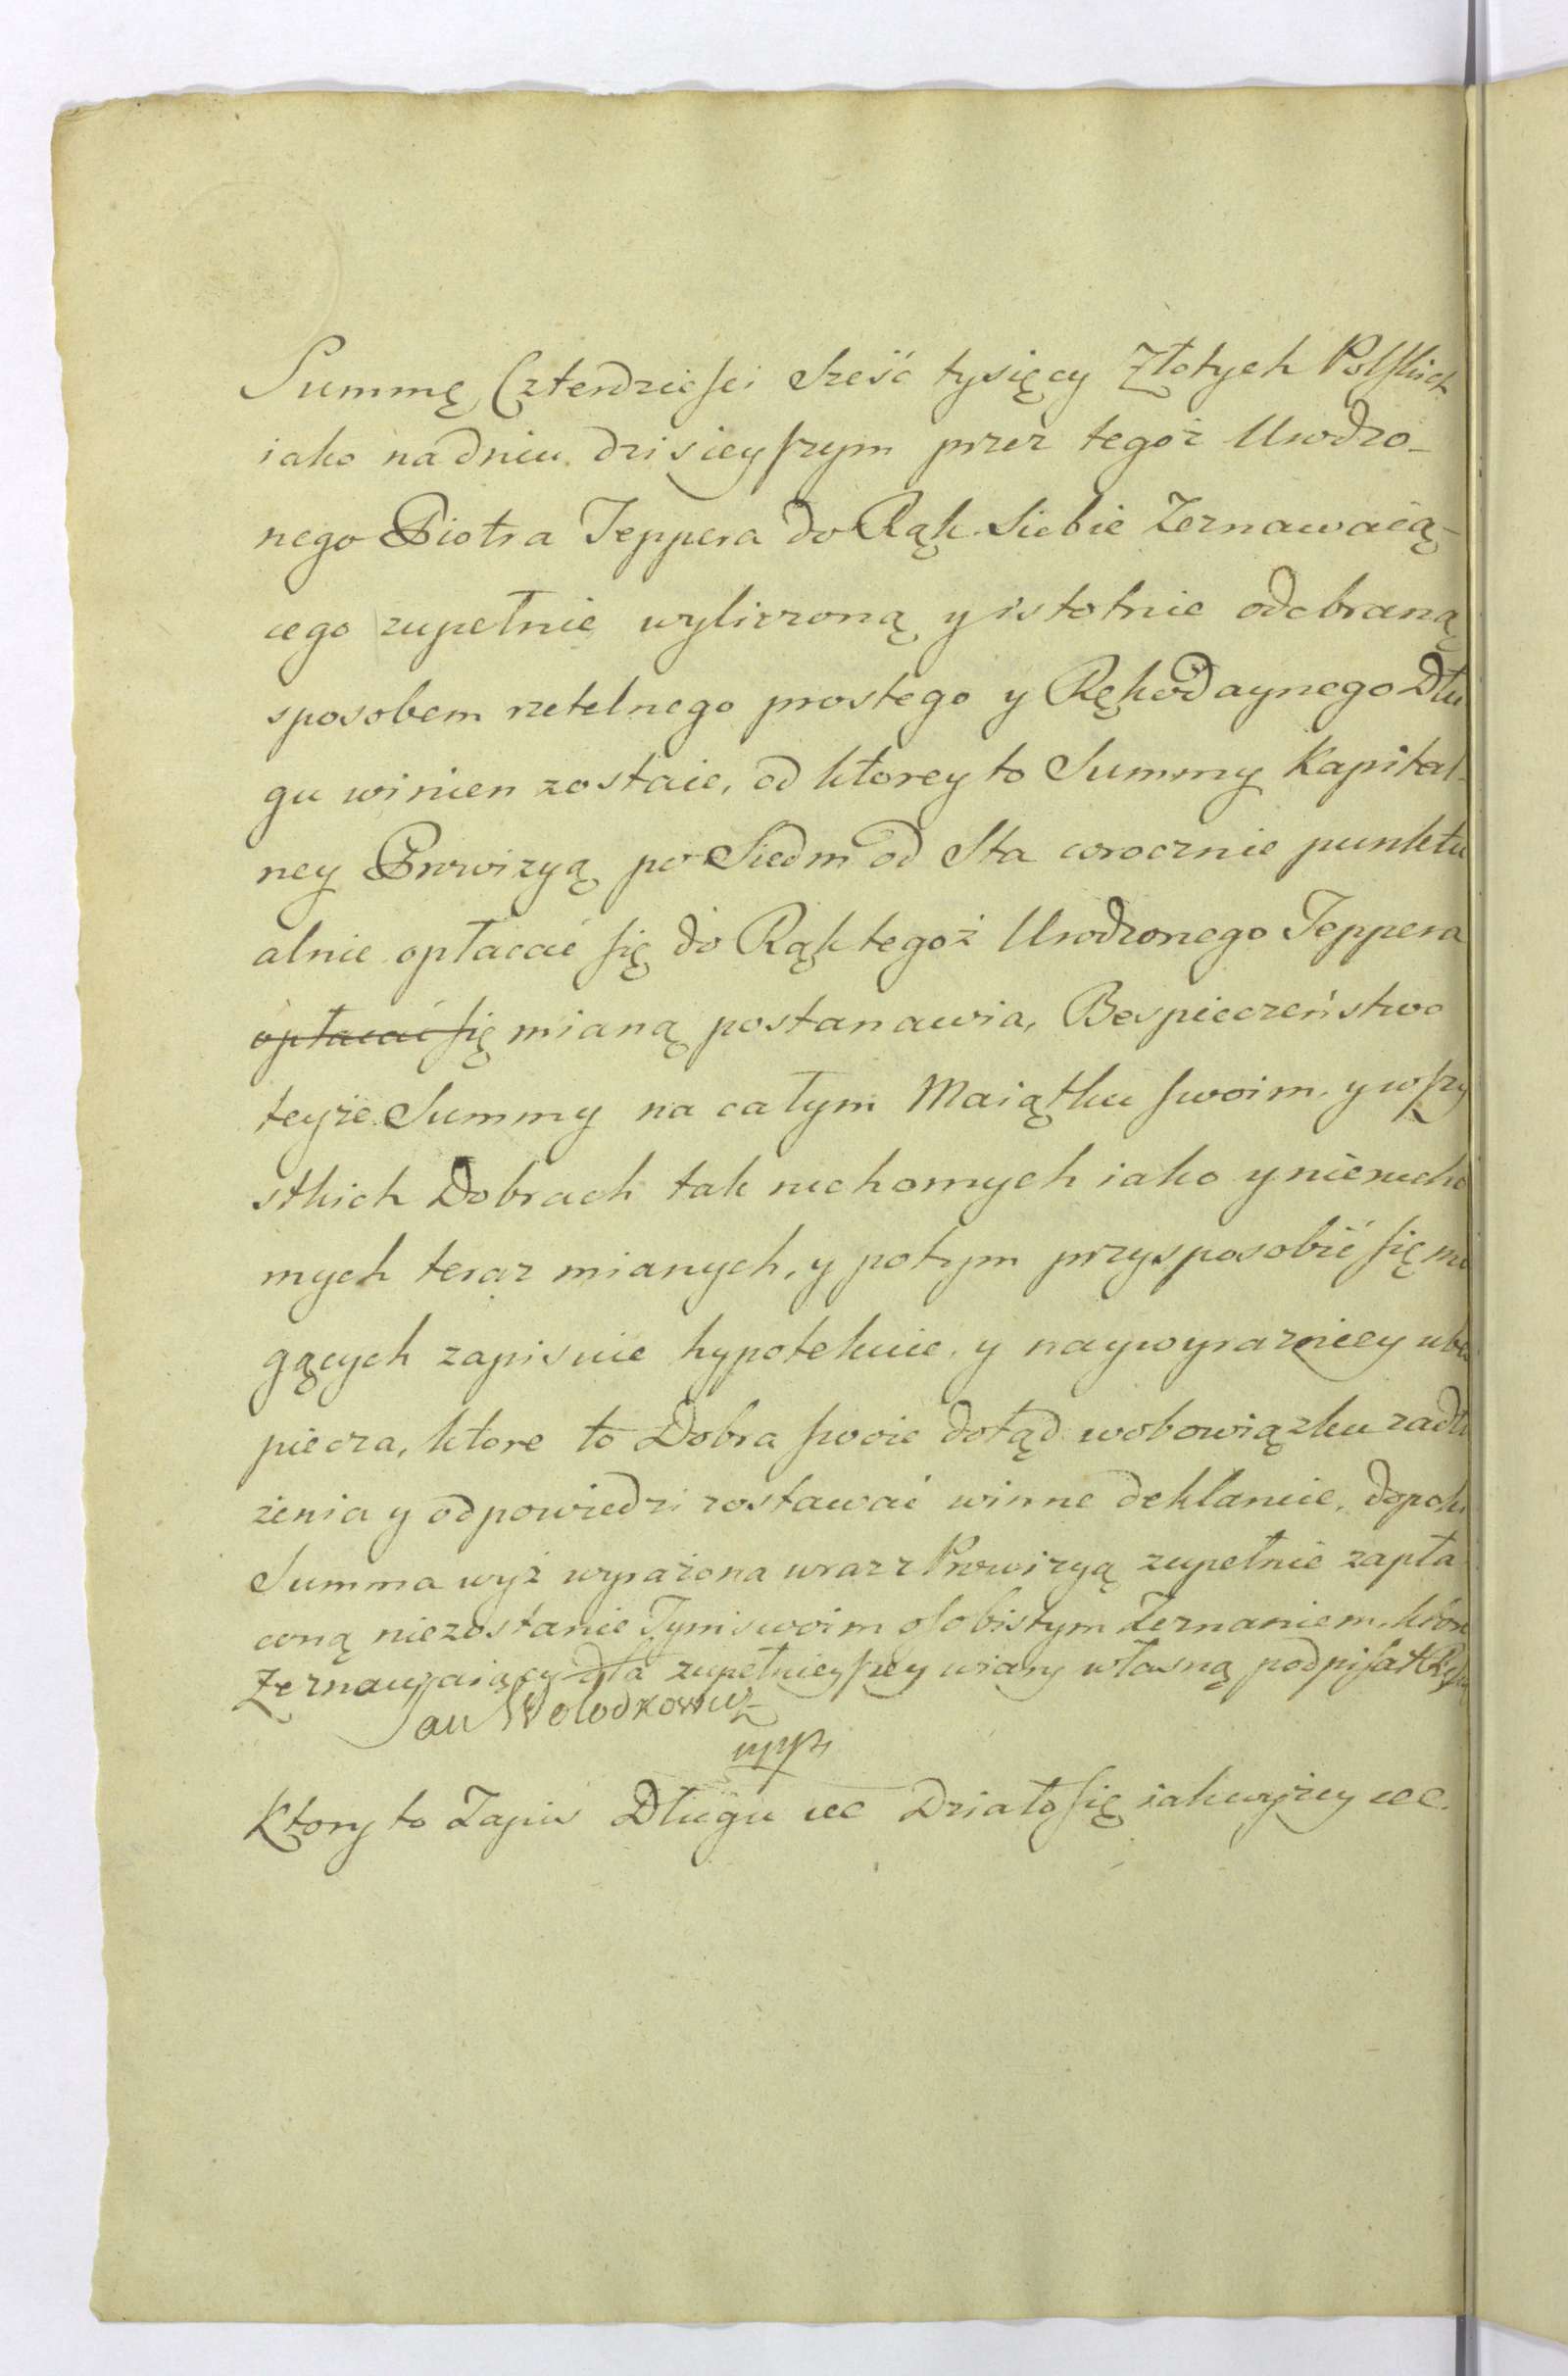 Summę Czterdzieſci Sześć tysięcy Złotych Polſkich
iako na dniu dzisieyſzym przez tegoż Urodzo-
nego Piotra Teppera do Rąk Siebie Zeznawaią-
cego zupełnie wyliczoną y istotnie odebraną
sposobem rzetelnego prostego y Rękodaynego Dłu
gu winien zostaie, od ktorey to Summy Kapital-
ney Prowizyą po Siedm od Sta corocznie punktu
alnie opłacać ſię do Rąk tegoż Urodzonego Teppera
opłacać ſię mianą postanawia, Bespieczeństwo
teyże Summy na całym Maiątku ſwoim, y wſzy
stkich Dobrach tak ruchomych iako y nierucho
mych teraz mianych, y potym przysposobić ſię mo
gących zapisuie hypotekuie, y naywyrazniey ube
piecza, ktore to Dobra ſwoie dotąd wobowiązku zadłu
żenia y odpowiedzi zostawać winne deklaruie, dopoki
Summa wyż wyrażona wraz z Prowizyą zupełnie zapła
coną niezostanie Tym swoim oſobistym Zeznaniem, które
Zeznawaiący dla zupełnieyſzey wiary własną podpiſał Ręką
Jan Wolodkowicz
mpp
Ktory to Zapis Długu etc Działo ſię iak wyżey etc.